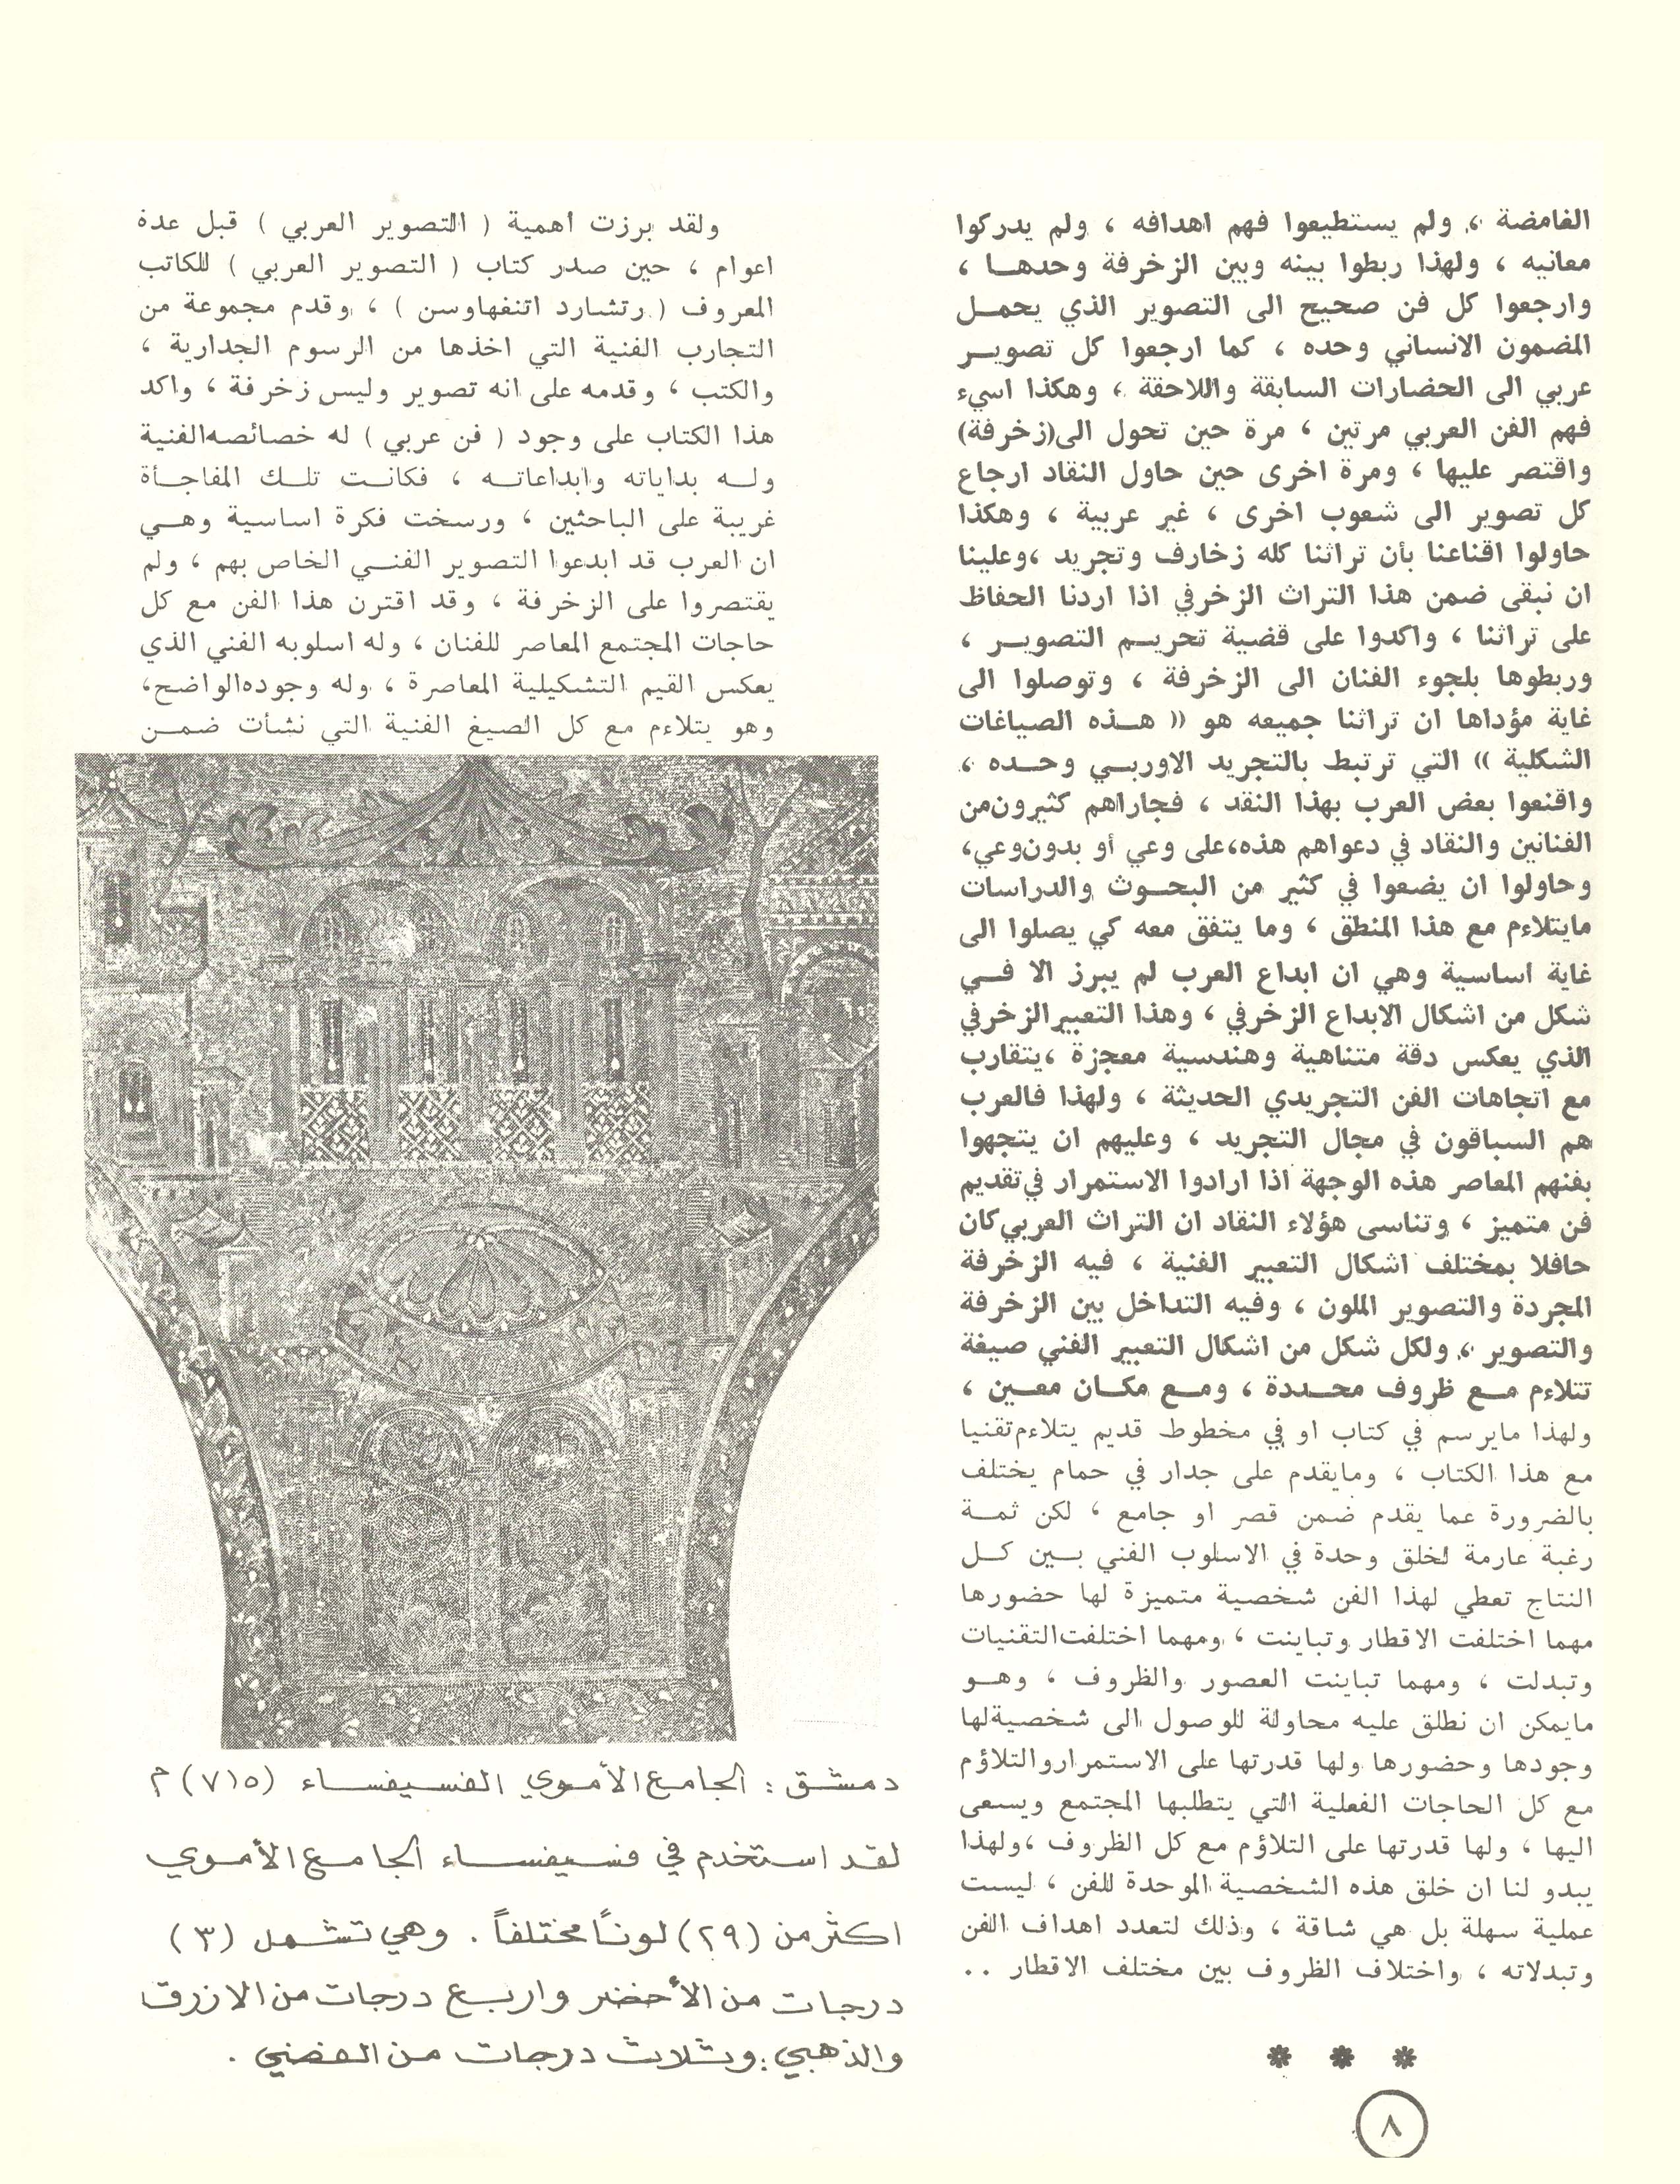 الغامضة ، ولم يستطيعوا فهم اهدافه ، ولم يدركوا
معانيه ، ولهذا ربطوا بينه وبين الزخرفة وحدهـا ،
وارجعوا كل فن صحيح الى التصوير الذي يحمـل
المضمون الانساني وحده ، كما ارجعوا كل تصويـر
عربي الى الحضارات السابقة واللاحقة ، وهكذا اسيء
فهم الفن العربي مرتين ، مرة حين تحول الى(زخرفة)
واقتصر عليها ، ومرة اخرى حين حاول النقاد ارجاع
كل تصوير الى شعوب اخرى ، غير عربية ، وهكذا
حاولوا اقناعنا بأن تراثنا كله زخارف وتجريد ،وعلينا
ان نبقى ضمن هذا التراث الزخرفي اذا اردنا الحفاظ
على تراثنا ، واكدوا على قضية تحريـم التصويـر ،
وربطوها بلجوء الفنان الى الزخرفة ، وتوصلوا الى
غاية مؤداها ان تراثنا جميعه هو (( هـذه الصياغات
الشكلية )) التي ترتبط بالتجريد الاوربـي وحـده ،
واقنعوا بعض العرب بهذا النقد ، فجاراهم كثيرون من
الفنانين والنقاد في دعواهم هذه،على وعي أو بدون وعي،
وحاولوا ان يضعوا في كثير من البحـوث والدراسات
مايتلاءم مع هذا المنطق ، وما يتفق معه كي يصلوا الى
غاية اساسية وهي ان ابداع العرب لم يبرز الا فـي
شكل من اشكال الابداع الزخرفي ، وهذا التعبير الزخرفي
الذي يعكس دقة متناهية وهندسية معجزة ،يتقارب
مع اتجاهات الفن التجريدي الحديثة ، ولهذا فالعرب
هم السباقون في مجال التجريد ، وعليهم ان يتجهوا
بفنهم المعاصر هذه الوجهة اذا ارادوا الاستمرار في تقديم
فن متميز ، وتناسى هؤلاء النقاد ان التراث العربي كان
حافلا بمختلف اشكال التعبير الفنية ، فيه الزخرفة
المجردة والتصوير الملون ، وفيه التداخل بين الزخرفة
والتصوير ، ولكل شكل من اشكال التعبير الفني صيغة
تتلاءم مـع ظروف محـددة ، ومـع مكـان معـين ،
ولهذا مايرسم في كتاب او في مخطوط قديم يتلاءم تقنيا
مع هذا الكتاب ، ومايقدم على جدار في حمام يختلف
بالضرورة عما يقدم ضمن قصر او جامع ، لكن ثمـة
رغبة عارمة لخلق وحدة في الاسلوب الفني بـين كـل
النتاج تعطي لهذا الفن شخصية متميزة لها حضورها
مهما اختلفت الاقطار وتباينت ، ومهما اختلفت التقنيات
وتبدلت ، ومهما تباينت العصور والظروف ، وهـو
مايمكن ان نطلق عليه محاولة للوصول الى شخصية لها
وجودها وحضورها ولها قدرتها على الاستمرار والتلاؤم
مع كل الحاجات الفعلية التي يتطلبها المجتمع ويسعى
اليها ، ولها قدرتها على التلاؤم مع كل الظروف ،ولهذا
يبدو لنا ان خلق هذه الشخصية الموحدة للفن ، ليست
عملية سهلة بل هي شاقة ، وذلك لتعدد اهداف الفن
وتبدلاته ، واختلاف الظروف بين مختلف الاقطار ..
* * *
ولقد برزت اهمية ( التصوير العربي ) قبل عدة
اعوام ، حين صدر كتاب ( التصوير العربي ) للكاتب
المعروف ( رتشارد اتنفهاوسن ) ، وقدم مجموعة من
التجارب الفنية التي اخذها من الرسوم الجدارية ،
والكتب ، وقدمه على انه تصوير وليس زخرفة ، واكد
هذا الكتاب على وجود ( فن عربي ) له خصائصه الفنية
ولـه بداياته وابداعاتـه ، فكانـت تلـك المفاجـأة
غريبة على الباحثين ، ورسخت فكرة اساسية وهـي
ان العرب قد ابدعوا التصوير الفنـي الخاص بهم ، ولم
يقتصروا على الزخرفة ، وقد اقترن هذا الفن مع كل
حاجات المجتمع المعاصر للفنان ، وله اسلوبه الفني الذي
يعكس القيم التشكيلية المعاصرة ، وله وجوده الواضح،
وهو يتلاءم مع كل الصيغ الفنية التي نشأت ضمـن
دمشق : الجامع الأموي الفسيفساء (٧١٥) م
لقد استخدم في فسيفساء الجامع الأموي
اكثر من (٢٩) لوناً مختلفاً . وهي تشمل (٣)
درجات من الأخضر واربع درجات من الازرق
والذهبي: وثلاث درجات من الفضي .
٨